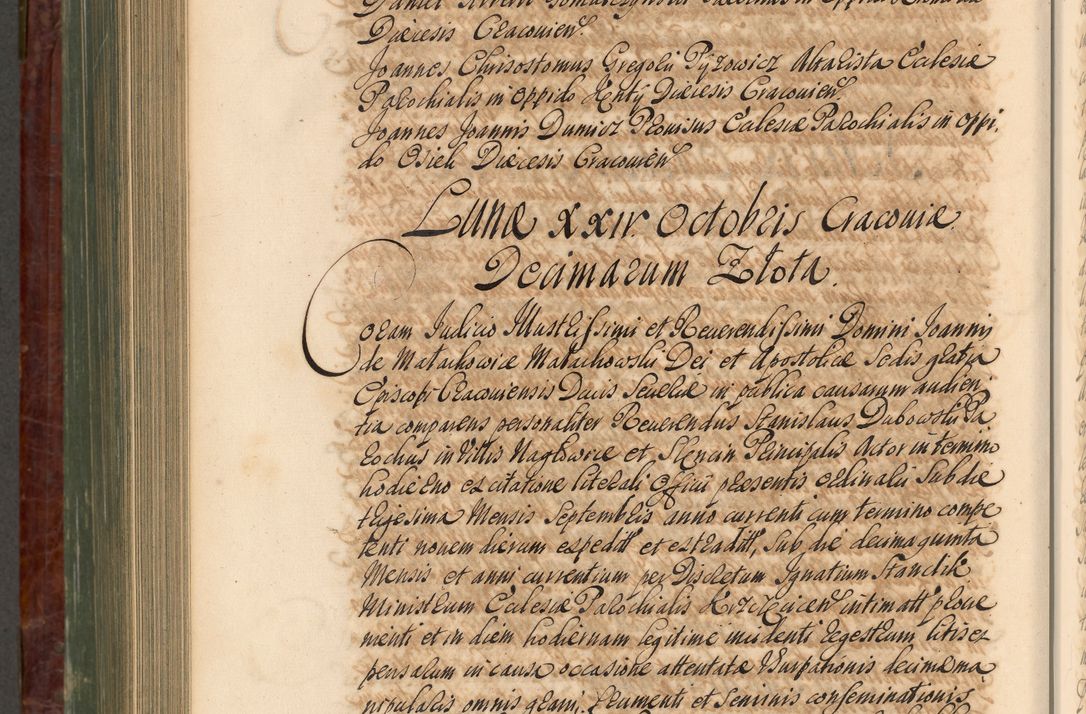 Diæcesis Cracovien̄
Joannes Chrisostomus Gregorii Pyzowicz Altarista Ecclesiæ
Parochialis in oppido Kenty Diæcesis Cracovien̄
Joannes Joannis Dunicz Provisus Ecclesiæ Parochialis in oppi,
do Osiek Diæcesis Cracovien̄
Lunæ XXIV Octobris Cracoviæ.
Decimarum Złota.
Coram Judicio Illustrissimi et Reverendissimi Domini Joannis
de Małachowice Małachowski Dei et Apostolicæ Sedis gratia
Episcopi Cracoviensis Ducis Severiæ in publica causarum audien,
tia comparens personaliter Reverendus Stanislaus Dubowski Pa
rochus in Villis Nagłowice et Slęcin Principalis Actor in termino
hodierno ex citatione literali Officii præsentis ordinarii sub die
trigesima Mensis Septembris anno currenti cum termino compe
tenti novem dierum expedit̄ et extradit̄, sub die decima quinta
Mensis et anni currentium per Discretum Ignatium Standik
Ministrum Ecclesiæ Parochialis intimatt̄ prove
nienti et in diem hodiernam legitime incidenti regestrum litis ex
pensarum in causa occasione attentatæ Usurpationis decimæ ma
nipularis omnis grani, frumenti et Seminis conseminationis